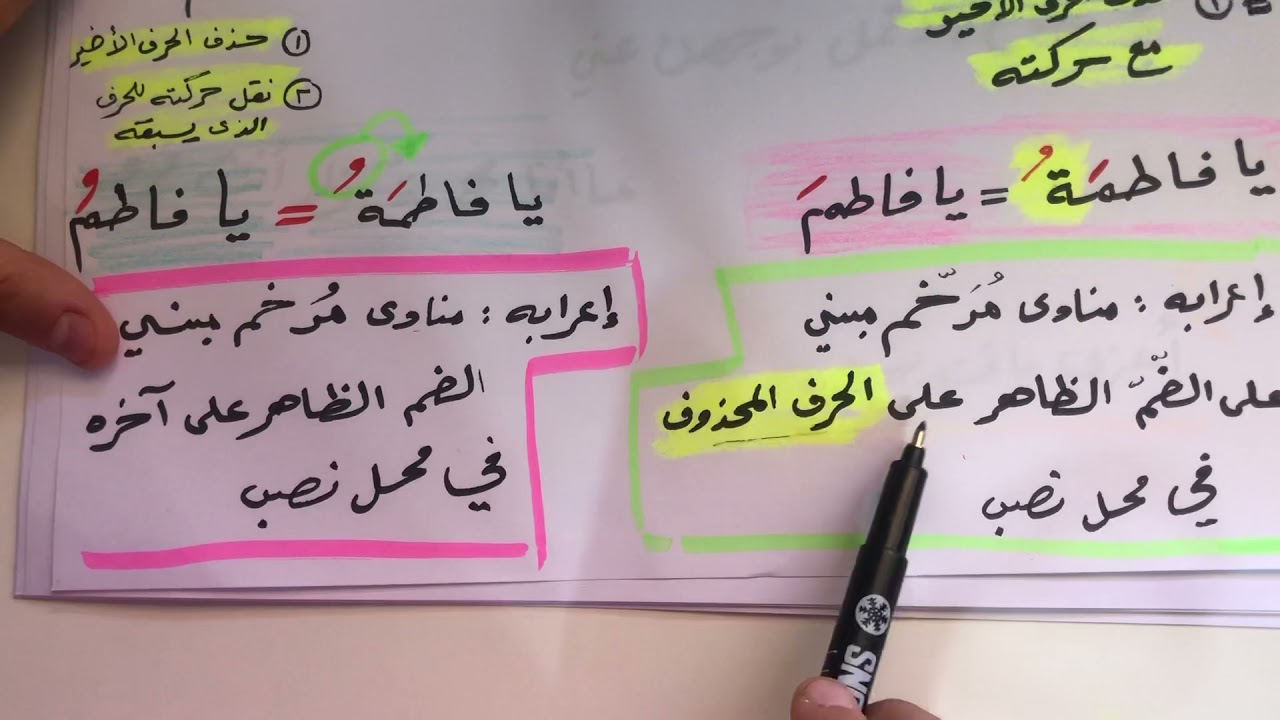 ① حذف الحرف الأخير
مع حركته
يا فاطمَةُ = يا فاطمَ
إعرابه : منادى مُرَخّم مبني
على الضّمّ الظاهر على الحرف المحذوف
في محل نصب
① حذف الحرف الأخير
② نقل حركته للحرف
الذى يسبقه
يا فاطمَةُ = يا فاطمُ
إعرابه : منادى مُرخم مبني
الضم الظاهر على آخره
في محل نصب
SNO